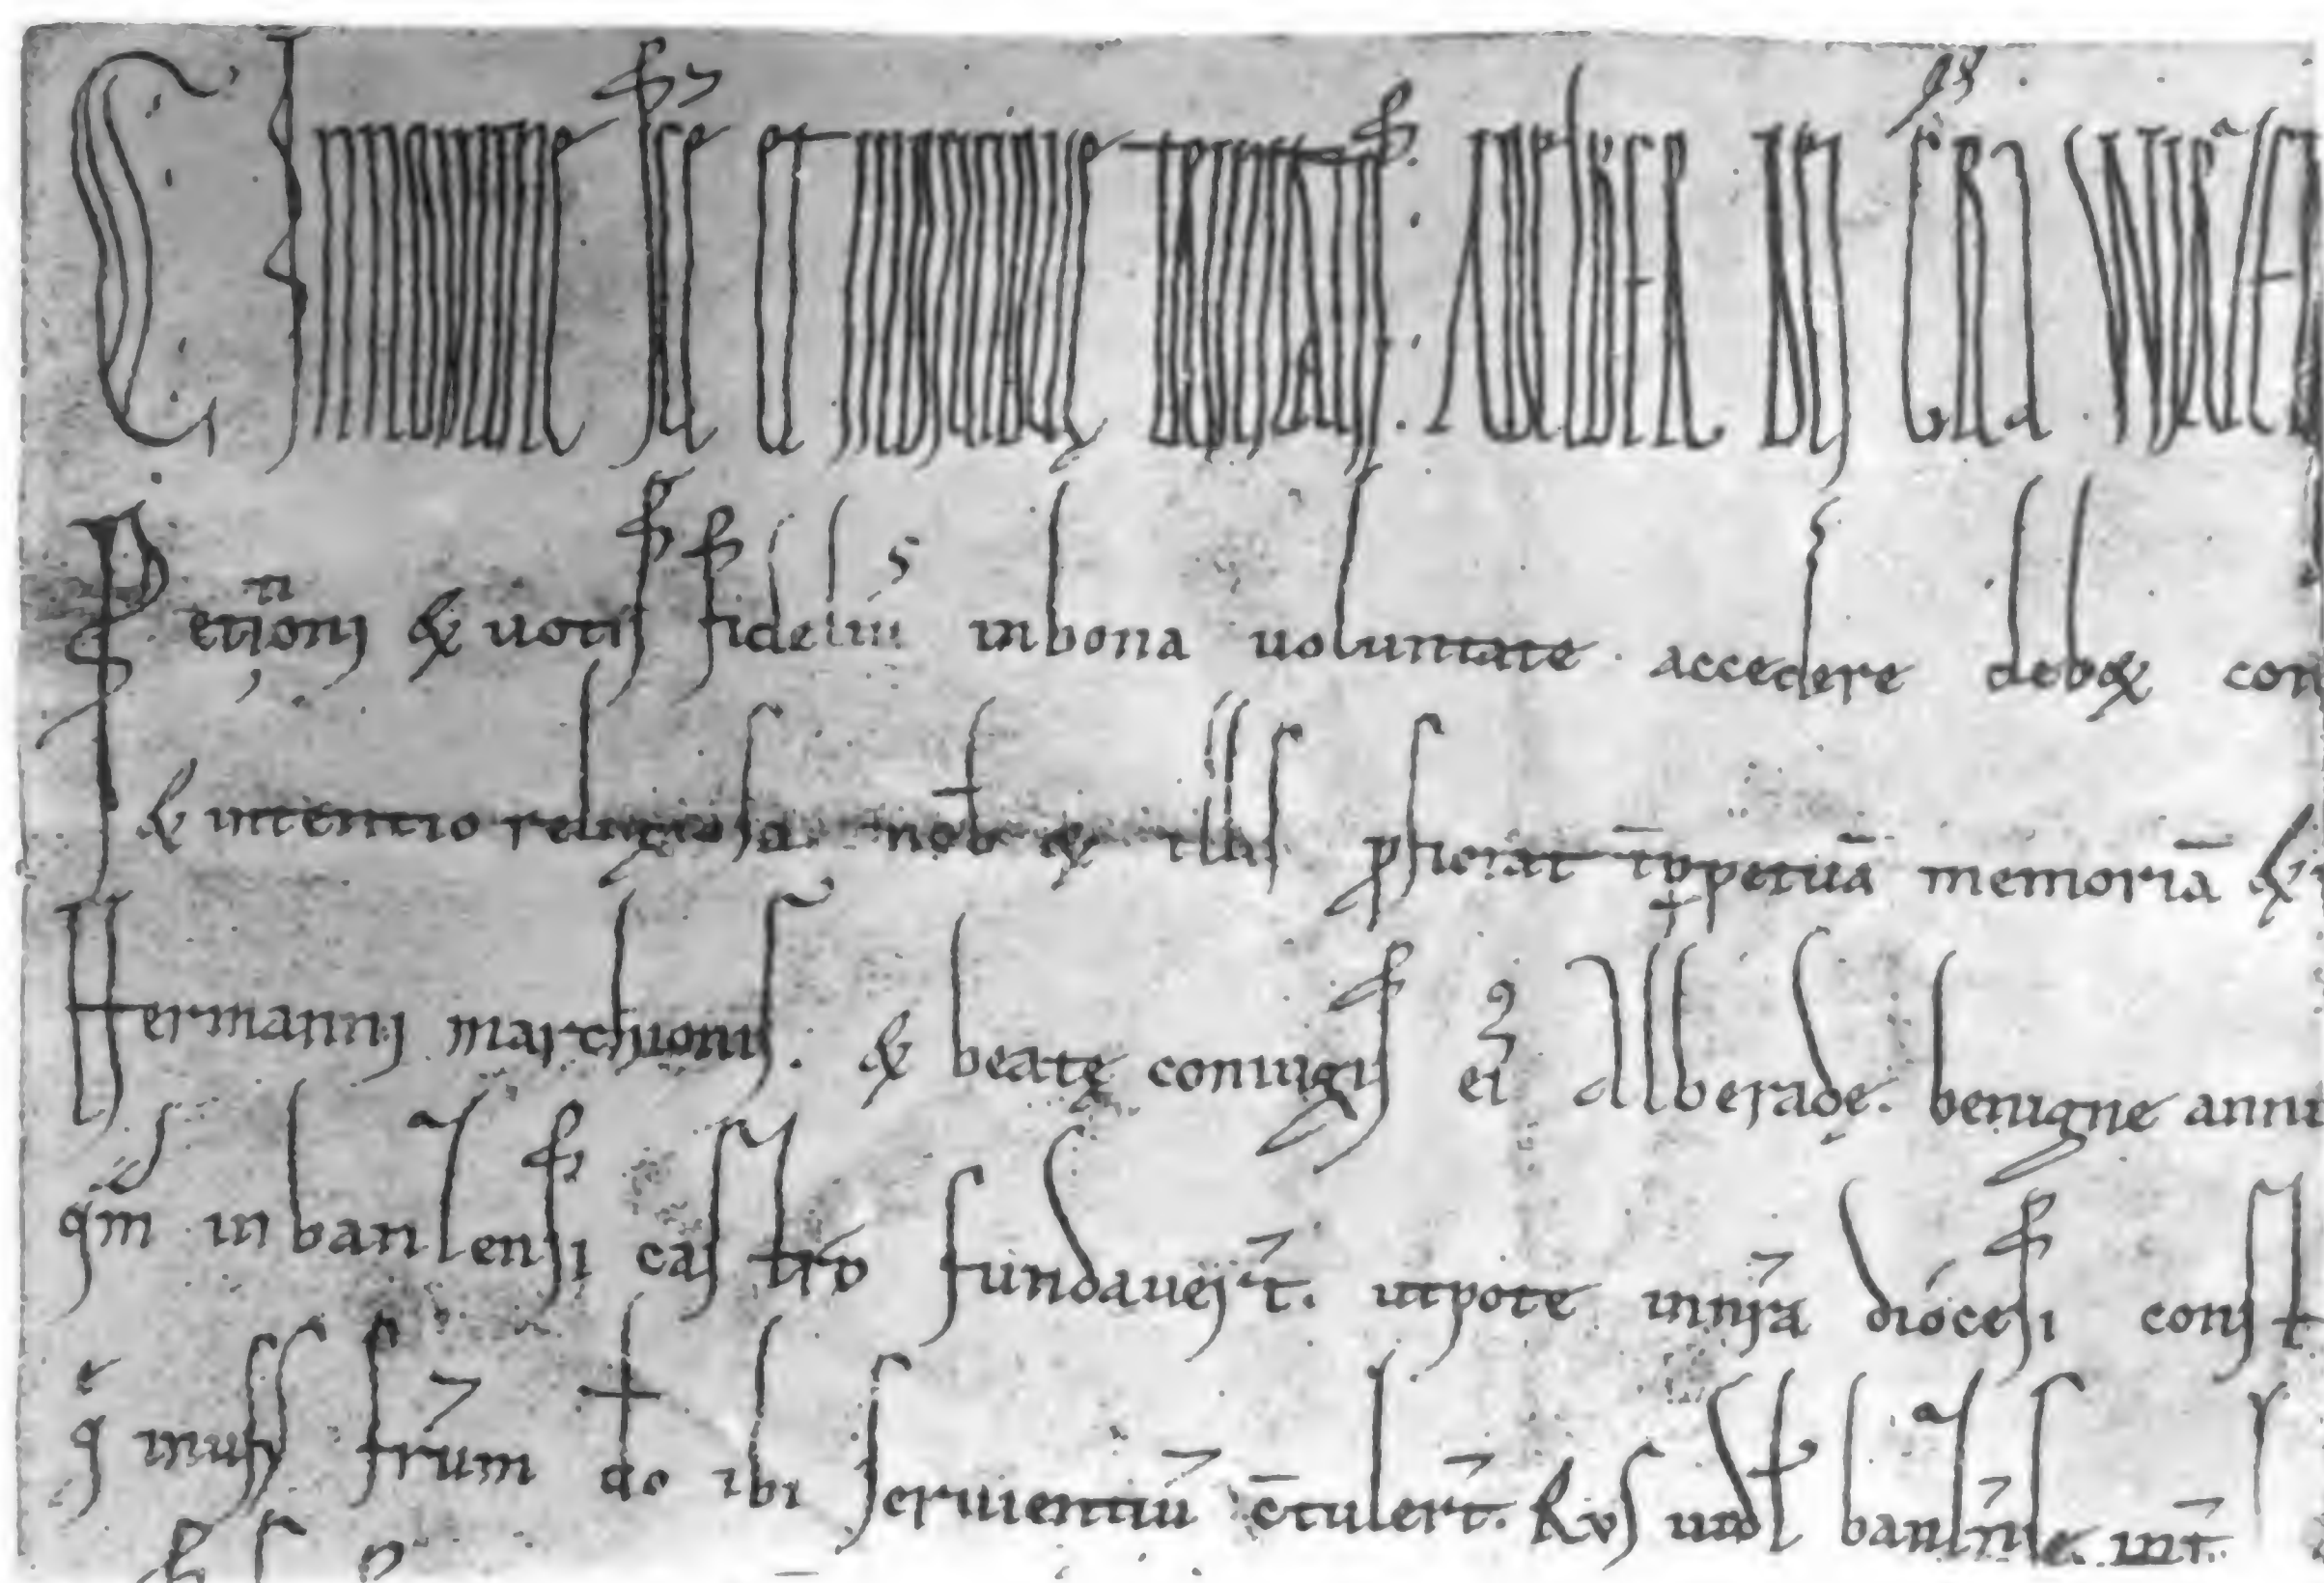 C In nomine scē et indiuidue trinitatis : Adelbero dei grā Wirce
Petitioni & uotis fideliū in bona uoluntate accedere deb& con
& intentio religiosa nob & illis ꝓficiat ī ꝑpetuā memoriā &
Hermanni marchionis. & beatę coniugis ei᾽ Alberade. benigne annu
qm̄ in banzensi castro fundauer̄t. utpote in nr̄a diócesi const
q in usus frūm dō ibi seruientiū c̄tuler̄t.